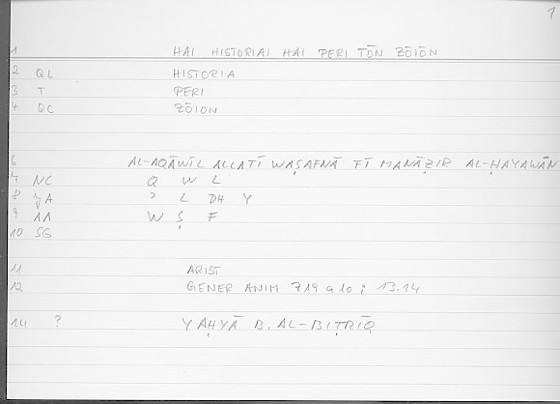 1
1 HAI HISTORIAI HAI PERI TŌN ZŌIŌN
2 QL HISTORIA
3 T PERI
4 QC ZŌION
6 AL-AQĀWĪL ALLATĪ WAṢAFNĀ FĪ MANĀẒIR AL-ḤAYAWĀN
7 NC Q W L
8 LL DH Y
9 AA W Ṣ F
10 SG
11 ARIST
12 GENER ANIM 719 a 10 ; 13.14
14 ? YAḤYĀ B. AL-BIṬRĪQ